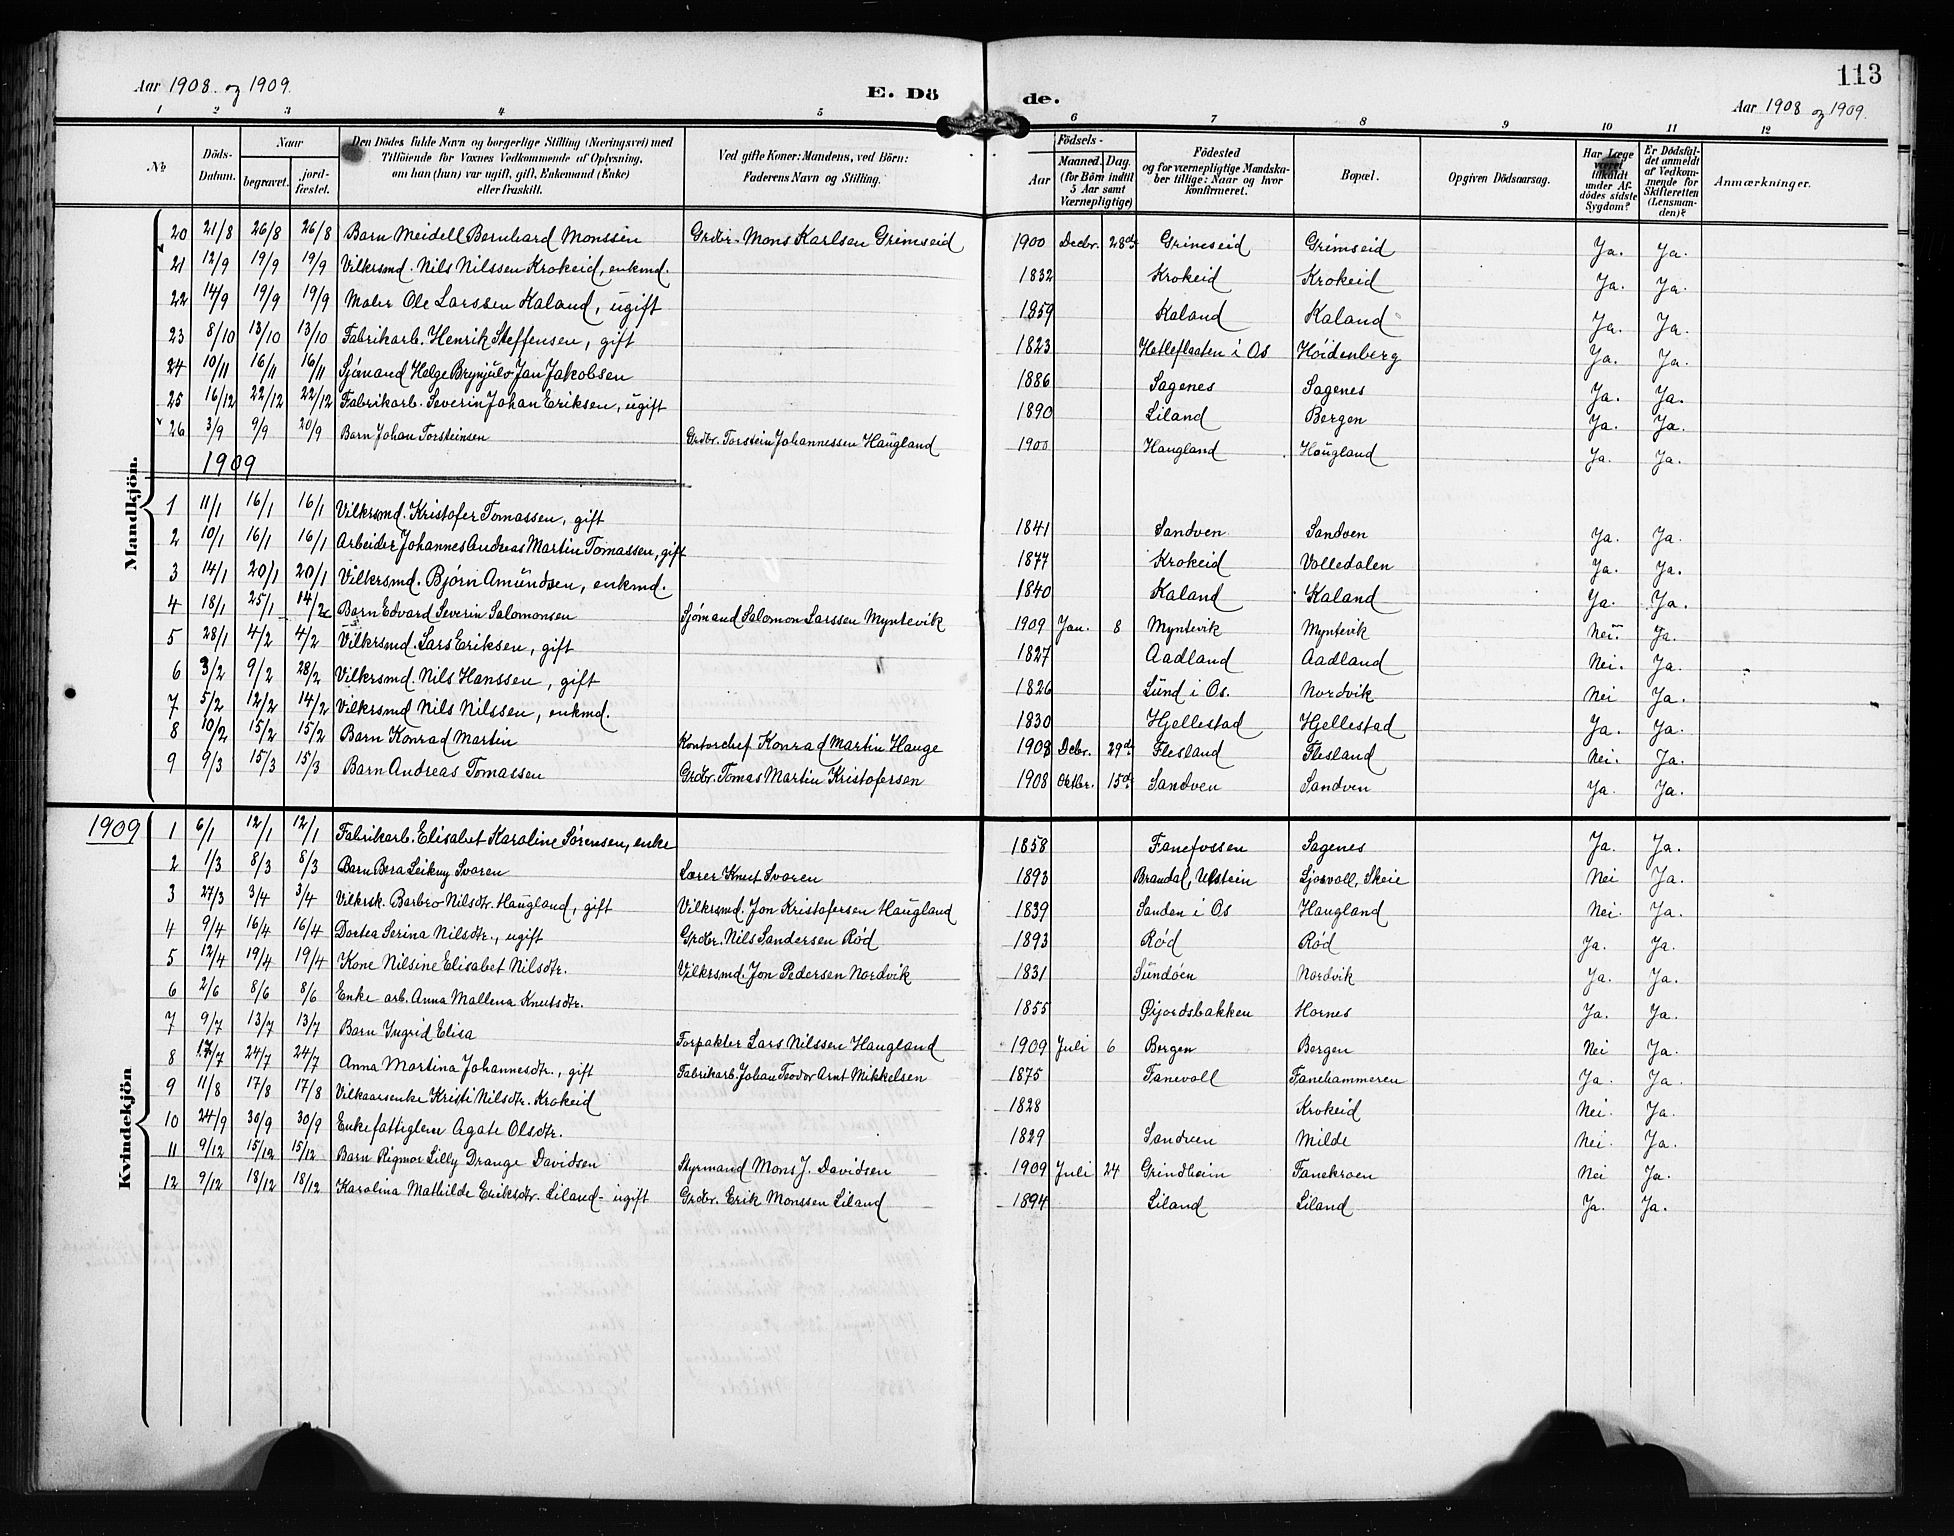 113
Aar 1908 og 1909.
E. Dö de.
Aar 1908 og 1909.
1 2 3 4 5 6 7 8 9 10 11 12
No
Döds-Datum.
Naar
begravet.
jord-fæstet.
Den Dödes fulde Navn og borgerlige Stilling (Næringsvei) med
Tilföiende for Voxnes Vedkommende af Oplysning,
om han (hun) var ugift, gift, Enkemand (Enke)
eller fraskilt.
Ved gifte Koner: Mandens, ved Börn:
Faderens Navn og Stilling.
Födsels-
Aar
Maaned. Dag.
(for Börn indtil
5 Aar samt
Værnepligtige)
Födested
og for værnepligtige Mandska-
ber tillige: Naar og hvor
konfirmeret.
Bopæl.
Opgiven Dödsaarsag.
Har Læge
været
tilkaldt
under Af-
dödes sidste
Sygdom?
Er Dödsfal-
det anmeldt
af Vedkom-
mende for
Skifteretten
(Lensman-
den)?
Anmærkninger.
Mandkjön.
20 21/8 26/8 26/8 Barn Meidell Bernhard Monssen Grdbr. Mons Karlsen Grimseid 1900 Decbr. 28de Grimseid Grimseid Ja. Ja.
21 12/9 19/9 19/9 Vilkrsmd. Nils Nilssen Krokeid, enkmd. 1832 Krokeid Krokeid Ja. Ja.
22 14/9 19/9 19/9 Maler Ole Larssen Kaland, ugift 1859 Kaland Kaland Ja. Ja.
23 8/10 13/10 13/10 Fabrikarb. Henrik Steffensen, gift 1823 Hetleflaaten i Os Höidenberg Ja. Ja.
24 10/11 16/11 16/11 Sjömand Helge Brynjulv Jan Jakobsen 1886 Sagenes Sagenes Ja. Ja.
25 16/12 22/12 22/12 Fabrikarb. Severin Johan Eriksen, ugift 1890 Liland Bergen Ja. Ja.
26 3/9 9/9 20/9 Barn Johan Torsteinsen Grdbr. Torstein Johannessen Haugland 1900 Haugland Haugland Ja. Ja.
1909
1 11/1 16/1 16/1 Vilkrsmd. Kristofer Tomassen, gift 1841 Sandven Sandven Ja. Ja.
2 10/1 16/1 16/1 Arbeider Johannes Andreas Martin Tomassen, gift 1877 Krokeid Volledalen Ja. Ja.
3 14/1 20/1 20/1 Vilkrsmd. Bjørn Amundsen, enkmd. 1840 Kaland Kaland Ja. Ja.
4 18/1 25/1 14/2 Barn Edvard Severin Salomonsen Sjømand Salomon Larssen Myntevik 1909 Jan. 8 Myntevik Myntevik Nei. Ja.
5 28/1 4/2 4/2 Vilkrsmd. Lars Eriksen, gift 1827 Aadland Aadland Nei. Ja.
6 3/2 9/2 28/2 Vilkrsmd. Nils Hanssen, gift 1826 Lund i Os. Nordvik Nei Ja.
7 5/2 12/2 14/2 Vilkrsmd Nils Nilssen, enkmd. 1830 Hjellestad Hjellestad Ja. Ja.
8 10/2 15/2 15/2 Barn Konrad Martin Kontorchef Konrad Martin Hauge 1908 Decbr. 29de Flesland Flesland Nei. Ja.
9 9/3 15/3 15/3 Barn Andreas Tomassen Grdbr. Tomas Martin Kristofersen 1908 Oktbr. 15de Sandven Sandven Ja. Ja.
1909
Kvindekjön
1 6/1 12/1 12/1 Fabrikarb. Elisabet Karoline Sørensen, enke 1858 Fanefossen Sagenes Ja. Ja.
2 1/3 8/3 8/3 Barn Bera Leikny Svoren Lærer Knut Svoren 1893 Brandal, Ulstein Ljosvoll, Skeie Nei Ja.
3 27/3 3/4 3/4 Vilkrsk. Barbro Nilsdtr. Haugland, gift Vilkrsmd. Jon Kristofersen Haugland 1839 Sanden i Os Haugland Nei. Ja.
4 9/4 16/4 16/4 Dortea Serina Nilsdtr., ugift Grdbr. Nils Sandersen Rød 1893 Rød Rød Ja. Ja.
5 12/4 19/4 19/4 Kone Nilsine Elisabet Nilsdtr. Vilkrsmd. Jon Pedersen Nordvik 1831 Sundöen Nordvik Ja. Ja.
6 2/6 8/6 8/6 Enke arb. Anna Mallena Knutsdtr. 1855 Øijordsbakken Hornes Ja. Ja.
7 9/7 13/7 13/7 Barn Ingrid Elisa Forpakter Lars Nilssen Haugland 1909 Juli 6 Bergen Bergen Nei Ja.
8 17/7 24/7 24/7 Anna Martina Johannesdtr., gift Fabrikarb. Johan Teodor Arnt Mikkelsen 1875 Fanevoll Fanehammeren Ja. Ja.
9 11/8 17/8 17/8 Vilkaarsenke Kristi Nilsdtr. Krokeid 1828 Krokeid Nei. Ja.
10 24/9 30/9 30/9 Enke fattiglem Agate Olsdtr. 1829 Sandven Milde Nei. Ja.
11 9/12 15/12 15/12 Barn Rigmor Lilly Drange Davidsen Styrmand Mons J. Davidsen 1909 Juli 24 Grindheim Fanekroen Nei Ja.
12 9/12 18/12 18/12 Karolina Mathilde Eriksdtr. Liland - ugift Grdbr. Erik Monssen Liland 1894 Liland Liland Ja. Ja.